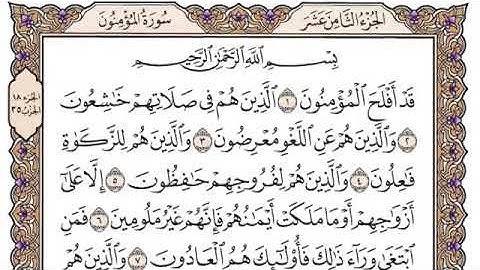 الجُزءُ الثَّامِنَ عَشَرَ
سُورَةُ المُؤْمِنُونَ
بِسْمِ اللَّهِ الرَّحْمَٰنِ الرَّحِيمِ
الجزء ١٨
الحزب ٣٥
قَدْ أَفْلَحَ الْمُؤْمِنُونَ ١ الَّذِينَ هُمْ فِي صَلَاتِهِمْ خَاشِعُونَ
٢ وَالَّذِينَ هُمْ عَنِ اللَّغْوِ مُعْرِضُونَ ٣ وَالَّذِينَ هُمْ لِلزَّكَوٰةِ
فَاعِلُونَ ٤ وَالَّذِينَ هُمْ لِفُرُوجِهِمْ حَافِظُونَ ٥ إِلَّا عَلَىٰ
أَزْوَاجِهِمْ أَوْ مَا مَلَكَتْ أَيْمَانُهُمْ فَإِنَّهُمْ غَيْرُ مَلُومِينَ ٦ فَمَنِ
ابْتَغَىٰ وَرَاءَ ذَٰلِكَ فَأُولَٰئِكَ هُمُ الْعَادُونَ ٧ وَالَّذِينَ هُمْ